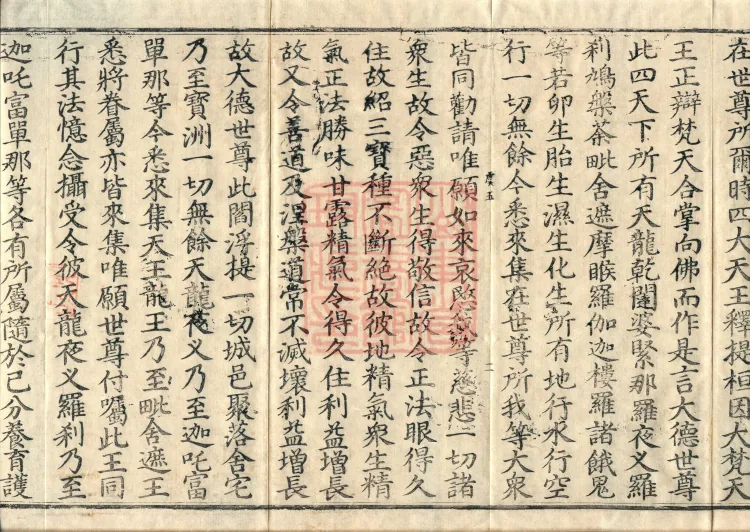 在世尊所爾時四大天王釋提桓因大梵天
王正辯梵天合掌向佛而作是言大德世尊
此四天下所有天龍乾闥婆緊那羅夜义羅
刹鳩槃荼毗舍遮摩睺羅伽迦樓羅諸餓鬼
等若卵生胎生濕生化生所有地行水行空
行一切無餘今悉來集在世尊所我等大衆
皆同勸請唯願如來哀愍我等慈悲一切諸
衆生故令惡衆生得敬信故令正法眼得久
住故紹三寶種不斷絕故彼地精氣衆生精
氣正法勝味甘露精氣令得久住利益增長
故又令善道及涅槃道常不滅壞利益增長
故大德世尊此閻浮提一切城邑聚落舍宅
乃至寶洲一切無餘天龍夜义乃至迦吒富
單那等今悉來集天王龍王乃至毗舍遮王
悉將眷屬亦皆來集唯願世尊付囑此王同
行其法憶念攝受令彼天龍夜义羅刹乃至
迦吒富單那等各有所屬隨於己分養育護